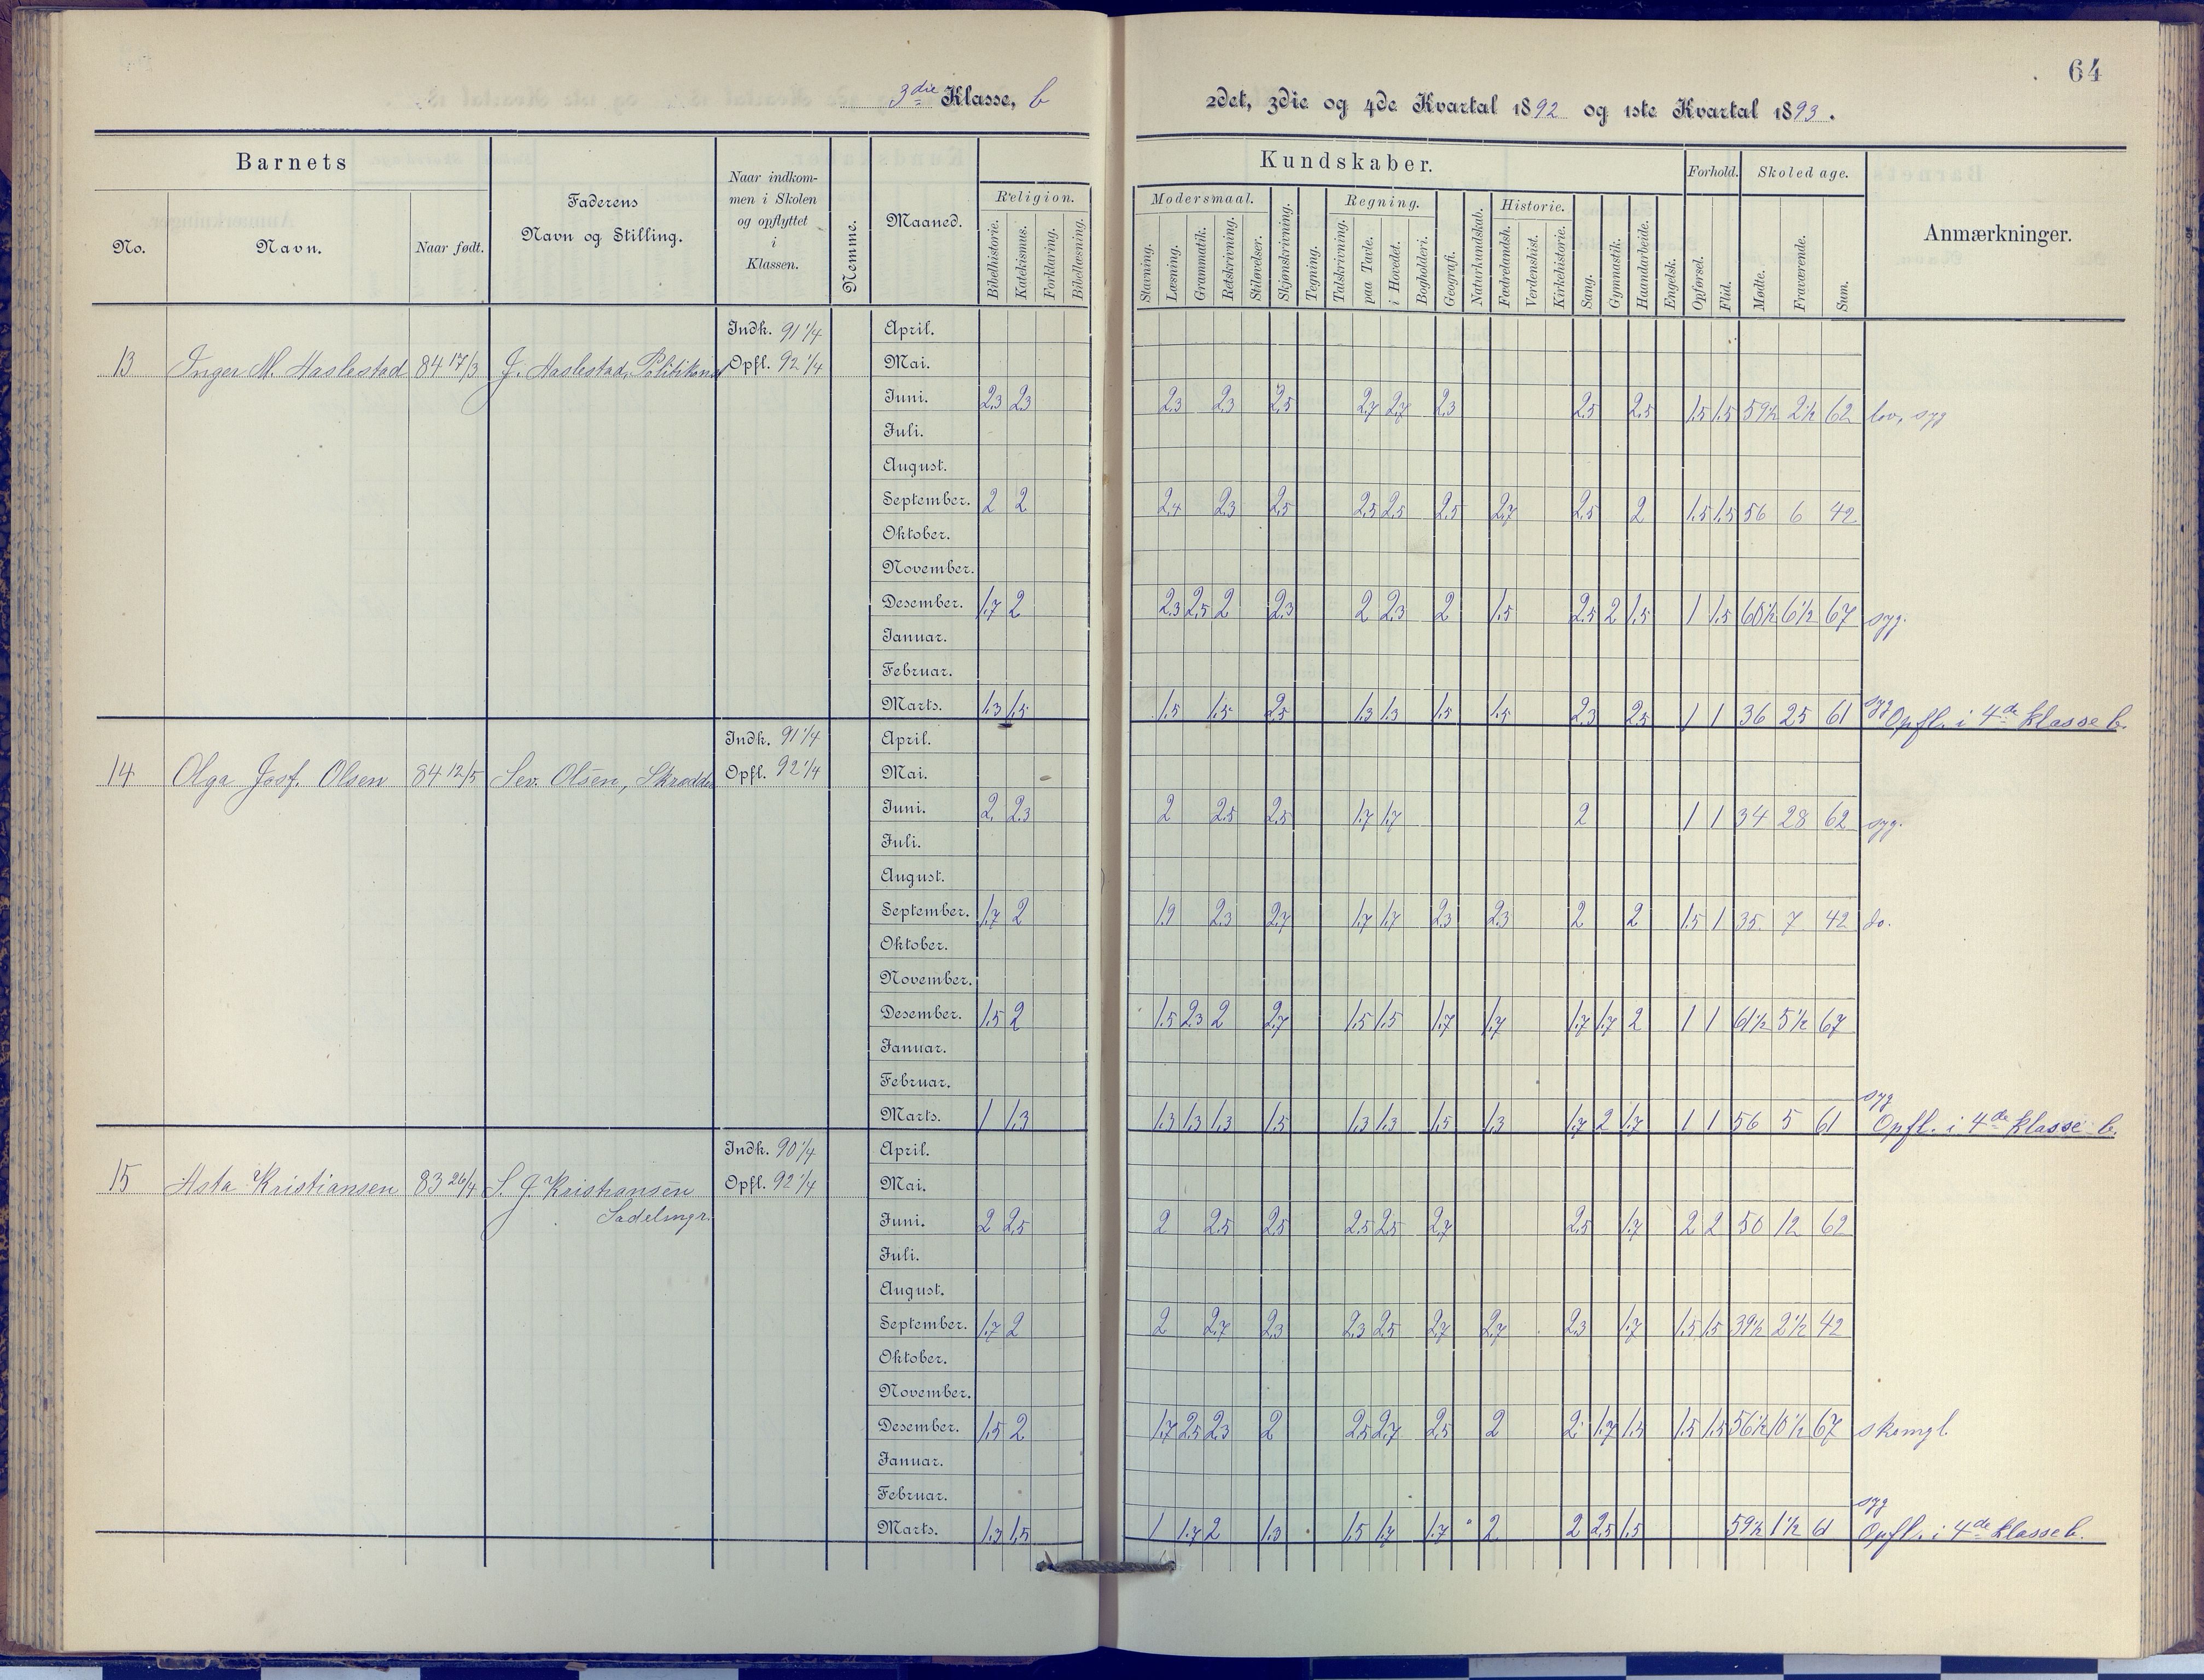 64
3die Klasse, b
2det, 3die og 4de Kvartal 1892 og 1ste Kvartal 1893.
Barnets
No.
Navn.
Naar født.
Faderens
Navn og Stilling.
Naar indkom-
men i Skolen
og opflyttet
i
Klassen.
Nemme.
Maaned.
Religion.
Bibelhistorie.
Katekismus.
Forklaring.
Bibellæsning.
Kundskaber.
Modersmaal.
Stavning.
Læsning.
Grammatik.
Retskrivning.
Stiløvelser.
Skjønskrivning.
Tegning.
Regning.
Talskrivning.
paa Tavle.
i Hovedet.
Bogholderi.
Geografi.
Naturkundskab.
Historie.
Fædrelandsh.
Verdenshist.
Kirkehistorie.
Sang.
Gymnastik.
Haandarbeide.
Engelsk.
Forhold.
Opførsel.
Flid.
Skoledage.
Mødte.
Fraværende.
Sum.
Anmærkninger.
Indk. 91 1/4 April.
13 Inger M. Haslestad 84 17/3 J. Haslestad, Politikonst Opfl. 92 1/4 Mai.
Juni. 2.3 2.3 2.3 2.3 2.5 2.7 2.7 2.3 2.5 2.5 1.5 1.5 59½ 2½ 62 lov, syg
Juli.
August.
September. 2 2 2.4 2.3 2.5 2.5 2.5 2.5 2.7 2.5 2 1.5 1.5 56 6 42
Oktober.
November.
Desember. 1.7 2 2.3 2.5 2 2.3 2 2.3 2 1.5 2.5 2 1.5 1 1.5 60½ 6½ 67 syg.
Januar.
Februar.
Marts. 1.3 1.5 1.5 1.5 2.5 1.3 1.3 1.5 1.5 2.3 2.5 1 1 36 25 61 syg Opfl. i 4de klasse b.
Indk. 91 1/4 April.
14 Olga Josf. Olsen 84 12/5 Sev. Olsen, Skrædder Opfl. 92 1/4 Mai.
Juni. 2. 2.3 2 2.5 2.5 1.7 1.7 2 1 1 34 28 62 syg.
Juli.
August.
September. 1.7 2 1.9 2.3 2.7 1.7 1.7 2.3 2.3 2 2 1.5 1 35 7 42 do.
Oktober.
November.
Desember. 1.5 2 1.5 2.3 2 2.7 1.5 1.5 1.7 1.7 1.7 1.7 2 1 1 61½ 5½ 67
Januar.
Februar.
syg
Marts. 1 1.3 1.3 1.3 1.3 1.5 1.3 1.3 1.5 1.3 1.7 2 1.7 1 1 56 5 61 Opfl. i 4de klasse b.
Indk. 90 1/4 April.
15 Asta Kristiansen 83 26/4 S. J. Kristiansen Opfl. 92 1/4 Mai.
Sadelmgr.
Juni. 2 2.5 2 2.5 2.5 2.5 2.5 2.7 2.5 1.7 2 2 50 12 62
Juli.
August.
September. 1.7 2 2 2.7 2.3 2.3 2.5 2.7 2.7 2.3 1.7 1.5 1.5 39½ 2½ 42
Oktober.
November.
Desember. 1.5 2 1.7 2.5 2.3 2 2.5 2.7 2.5 2 2. 1.7 1.5 1.5 1.5 56½ 10½ 67 skomgl.
Januar.
Februar.
syg
Marts. 1.3 1.5 1 1.7 2 1.3 1.5 1.7 1.7 2 2 2.5 1.5 59½ 1½ 61 Opfl. i 4de klasse b.